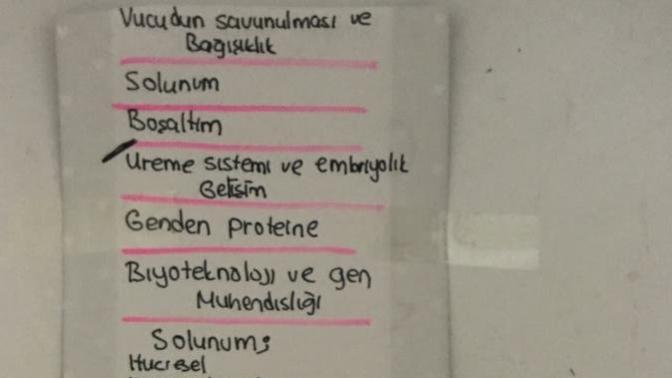 Vucudun savunulması ve
Bağışıklık
Solunum
Boşaltım
Üreme sistemi ve embriyolik
Gelişim
Genden proteine
Biyoteknoloji ve gen
Muhendisliği
Solunum;
Hucresel